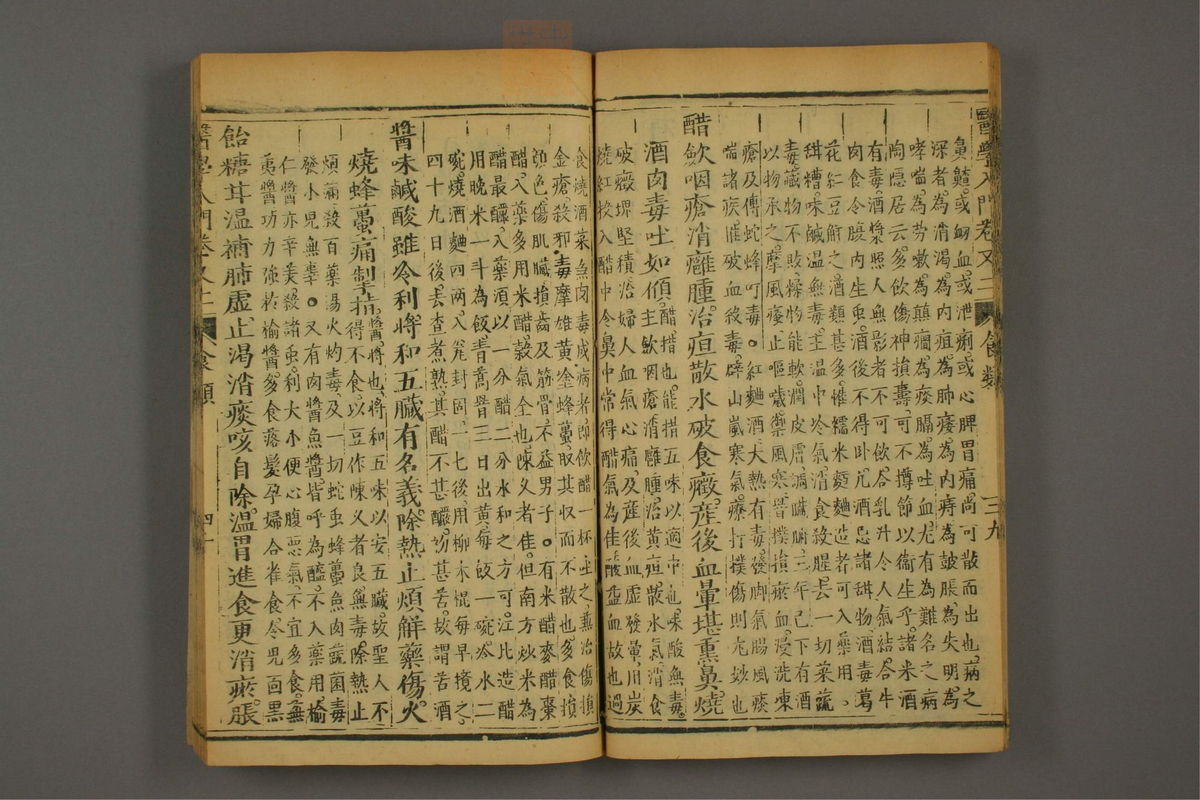 醫學入門卷又二 食類 三九
鼻齄。或衂血。或泄痢。或心脾胃痛。尚可散而出也。病之
深者。為消渴。為内疽。為肺痿。為内痔。為皷脹。為失明。為
哮喘。為勞嗽。為顛癇。為痰膈。為吐血。尤有為難名之病
陶隱居云。多飲傷神損壽。可不撙節以衞生乎。諸米酒
有毒。酒漿照人無影者。不可飲。合乳汁令人氣結。合牛
肉食令腹内生虫。酒後不得卧。凡酒忌諸甜物。酒毒葛
花紅豆解之。酒類甚多。惟糯米麫麯造者可入藥用。
甜糟。味鹹温無毒。主温中冷氣。消食殺腥。去一切菜蔬
毒。藏物不敗。糅物能軟。潤皮膚。調臟腑。三年已下有酒
以物承之。摩風瘙。止嘔噦。禦風寒。罯撲損瘀血。浸洗凍
瘡。及傅蛇蜂叮毒。紅麯酒大熱有毒。發脚氣腸風痰
喘諸疾。惟破血殺毒。辟山嵐寒氣。療打撲傷則尤妙也
醋斂咽瘡消癰腫。治疸散水破食癥。産後血暈堪熏鼻。燒
酒肉毒吐如傾。醋。措也。能措五味以適中也。味酸無毒。
主斂咽瘡。消癰腫。治黃疸。散水氣。消食
破癥塊堅積。治婦人血氣心痛。及産後血虛發暈。用炭
燒紅投入醋中。令鼻中常得醋氣為佳。酸益血故也。過
食燒酒菜魚肉毒成病者。即飲醋一杯吐之。兼治傷損
金瘡。殺邪毒。摩雄黃塗蜂蠆。取其收而不散也。多食損
顏色。傷肌臟。損齒及筋骨。不益男子。有米醋麥醋棗
醋。入藥多用米醋。穀氣全也。陳乂者佳。但南方炒米為
醋最釅。入藥須以一分醋二分水和之方可。江北造醋
用晚米一斗為飯。青蒿罯三日出黃。每飯一碗。冷水二
碗。燒酒麯四兩。入瓮封固。一七後。用柳木棍每早攪之。
四十九日後。去查煮熟。其醋不甚釅。切甚苦。故謂苦酒
醬味鹹酸雖冷利。將和五臟有名義。除熱止煩解藥傷。火
燒蜂蠆痛制㨗。醬。將也。將和五味以安五臟。故聖人不
得不食。以豆作陳乂者良。無毒。除熱止
煩滿。殺百藥湯火灼毒。及一切蛇虫蜂蠆魚肉蔬菌毒
發小兒無辜。又有肉醬魚醬。皆呼為醢。不入藥用。榆
仁醬亦辛美。殺諸虫。利大小便。心腹惡氣。不宜多食。蕪
荑醬功力強於榆醬。多食落髮。孕婦合雀食令兒面黑
飴糖甘温補肺虛。止渴消痰咳自除。温胃進食更消瘀。脹
醫學入門卷又二 食類 四十